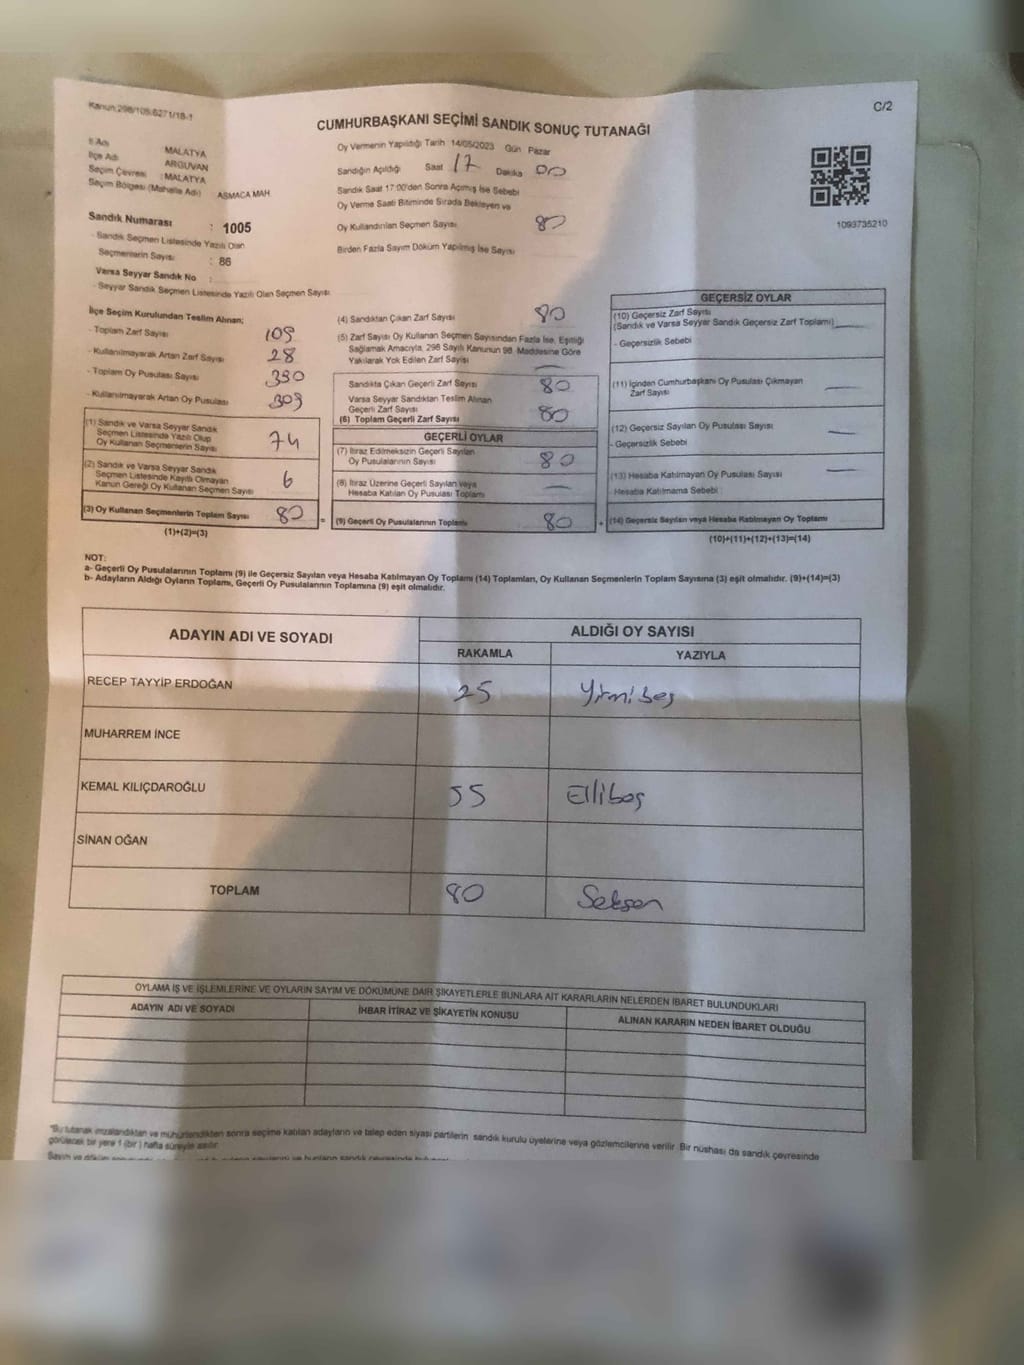 Kanun:298/105;6271/18-1
C/2
CUMHURBAŞKANI SEÇİMİ SANDIK SONUÇ TUTANAĞI
İl Adı : MALATYA
İlçe Adı : ARGUVAN
Seçim Çevresi : MALATYA
Seçim Bölgesi (Mahalle Adı) ASMACA MAH
Sandık Numarası : 1005
- Sandık Seçmen Listesinde Yazılı Olan
Seçmenlerin Sayısı : 86
Varsa Seyyar Sandık No :
- Seyyar Sandık Seçmen Listesinde Yazılı Olan Seçmen Sayısı
Oy Vermenin Yapıldığı Tarih 14/05/2023 Gün Pazar
Sandığın Açıldığı Saat 17 Dakika 00
Sandık Saat 17:00'den Sonra Açılmış İse Sebebi
Oy Verme Saati Bitiminde Sırada Bekleyen ve
Oy Kullandırılan Seçmen Sayısı 80
Birden Fazla Sayım Döküm Yapılmış İse Sayısı
1093735210
İlçe Seçim Kurulundan Teslim Alınan;
- Toplam Zarf Sayısı 109
- Kullanılmayarak Artan Zarf Sayısı 28
- Toplam Oy Pusulası Sayısı 390
- Kullanılmayarak Artan Oy Pusulası 309
(1) Sandık ve Varsa Seyyar Sandık
Seçmen Listesinde Yazılı Olup
Oy Kullanan Seçmenlerin Sayısı 74
(2) Sandık ve Varsa Seyyar Sandık
Seçmen Listesinde Kayıtlı Olmayan
Kanun Gereği Oy Kullanan Seçmen Sayısı 6
(3) Oy Kullanan Seçmenlerin Toplam Sayısı 80
(1)+(2)=(3)
(4) Sandıktan Çıkan Zarf Sayısı 80
(5) Zarf Sayısı Oy Kullanan Seçmen Sayısından Fazla İse, Eşitliği
Sağlamak Amacıyla, 298 Sayılı Kanunun 98. Maddesine Göre
Yakılarak Yok Edilen Zarf Sayısı —
Sandıkta Çıkan Geçerli Zarf Sayısı 80
Varsa Seyyar Sandıktan Teslim Alınan
Geçerli Zarf Sayısı
(6) Toplam Geçerli Zarf Sayısı 80
GEÇERLİ OYLAR
(7) İtiraz Edilmeksizin Geçerli Sayılan
Oy Pusulalarının Sayısı 80
(8) İtiraz Üzerine Geçerli Sayılan veya
Hesaba Katılan Oy Pusulası Toplamı —
= (9) Geçerli Oy Pusulalarının Toplamı 80 +
GEÇERSİZ OYLAR
(10) Geçersiz Zarf Sayısı
(Sandık ve Varsa Seyyar Sandık Geçersiz Zarf Toplamı) —
- Geçersizlik Sebebi
(11) İçinden Cumhurbaşkanı Oy Pusulası Çıkmayan
Zarf Sayısı —
(12) Geçersiz Sayılan Oy Pusulası Sayısı —
- Geçersizlik Sebebi
(13) Hesaba Katılmayan Oy Pusulası Sayısı —
Hesaba Katılmama Sebebi
(14) Geçersiz Sayılan veya Hesaba Katılmayan Oy Toplamı
(10)+(11)+(12)+(13)=(14)
NOT:
a- Geçerli Oy Pusulalarının Toplamı (9) ile Geçersiz Sayılan veya Hesaba Katılmayan Oy Toplamı (14) Toplamları, Oy Kullanan Seçmenlerin Toplam Sayısına (3) eşit olmalıdır. (9)+(14)=(3)
b- Adayların Aldığı Oyların Toplamı, Geçerli Oy Pusulalarının Toplamına (9) eşit olmalıdır.
ADAYIN ADI VE SOYADI
ALDIĞI OY SAYISI
RAKAMLA YAZIYLA
RECEP TAYYİP ERDOĞAN 25 Yirmibeş
MUHARREM İNCE
KEMAL KILIÇDAROĞLU 55 Ellibeş
SİNAN OĞAN
TOPLAM 80 Seksen
OYLAMA İŞ VE İŞLEMLERİNE VE OYLARIN SAYIM VE DÖKÜMÜNE DAİR ŞİKAYETLERLE BUNLARA AİT KARARLARIN NELERDEN İBARET BULUNDUKLARI
ADAYIN ADI VE SOYADI İHBAR İTİRAZ VE ŞİKAYETİN KONUSU ALINAN KARARIN NEDEN İBARET OLDUĞU
"Bu tutanak imzalandıktan ve mühürlendikten sonra seçime katılan adayların ve talep eden siyasi partilerin sandık kurulu üyelerine veya gözlemcilerine verilir. Bir nüshası da sandık çevresinde
görülecek bir yere 1 (bir) hafta süreyle asılır.
Sayım ve döküm